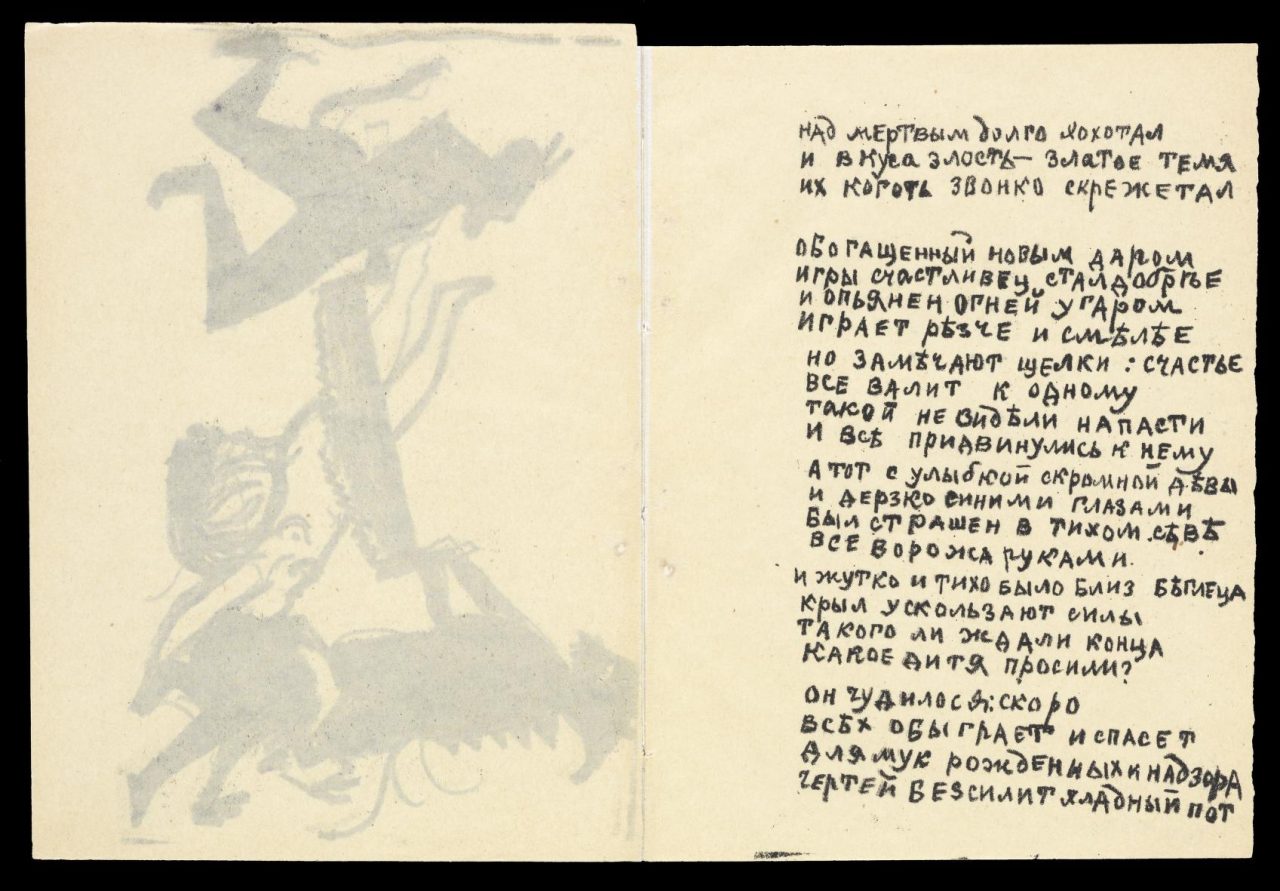 над мертвым долго хохотал
и вкуса злость – златое темя
их коготь звонко скрежетал
обогащенный новым даром
игры счастливец, стал добрѣе
и опьянен огней угаром
играет рѣзче и смѣлѣе
но замѣчают щелки : счастье
все валит к одному
такой не видѣли напасти
и всѣ придвинулись к нему
а тот с улыбкой скромной дѣвы
и дерзко синими глазами
был страшен в тихом
все ворожа руками.
и жутко и тихо было близ бѣглеца
крыл ускользают силы
такого ли ждали конца
какое дитя просили?
он чудилося: скоро
всѣх обыграет и спасет
для мук рожденных и надзора
чертей безсилит хладный пот